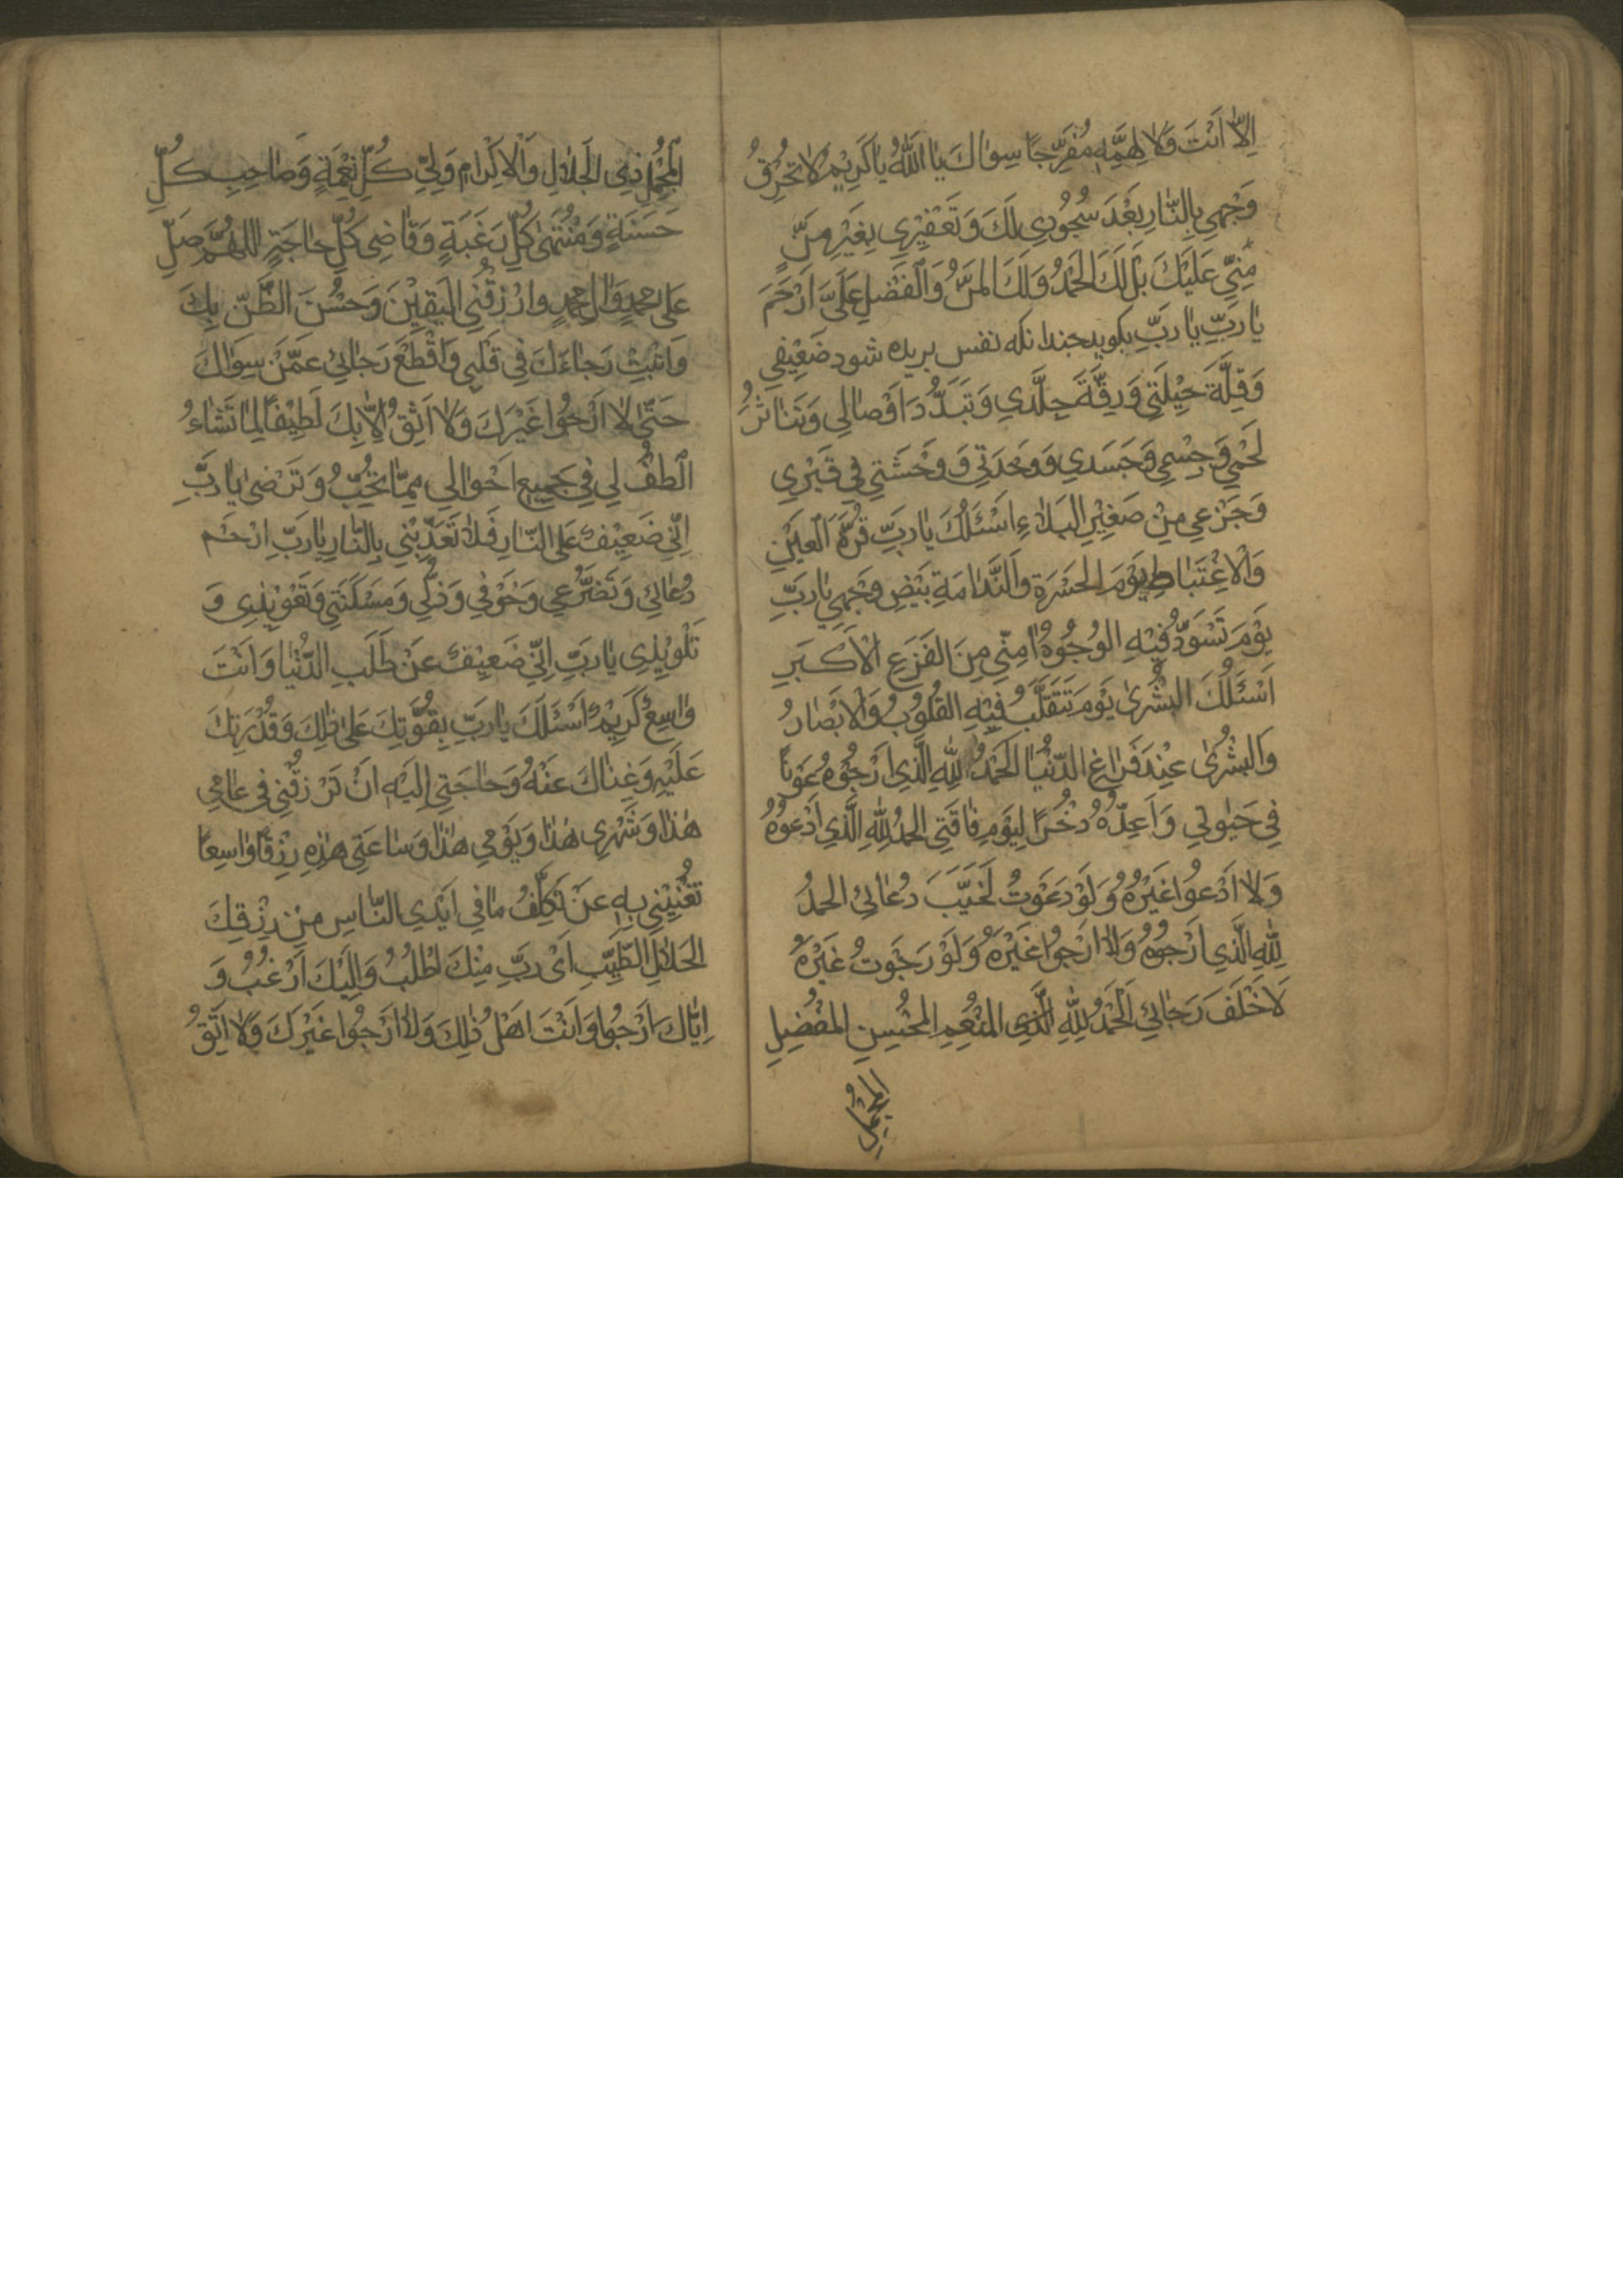 اِلّا اَنْتَ وَلا لِهَمِّهِ مُفَرِّجًا سِوٰاكَ يٰا اَللّٰهُ يٰا كَرِيْمُ لا تُحْرِقْ
وَجْهِي بِالنّٰارِ بَعْدَ سُجُوْدِي لَكَ وَتَعْفِيْرِي بِغَيْرِ مَنٍّ
مِنِّي عَلَيْكَ بَلْ لَكَ الحَمْدُ وَلَكَ المَنُّ وَالْفَضْلِ عَلَيَّ اَرْحَمَ
يٰا رَبِّ يٰا رَبِّ بكويد جندانكه نفس بريده شود ضَعِيْفِي
وَقِلَّةَ حِيْلَتِي وَرِقَّةَ جِلْدِي وَتَبَدُّدَ اَوْصٰالِي وَتَنٰاثُرُ
لَحْمِي وَجِسْمِي وَجَسَدِي وَوَحْدَتِي وَوَحْشَتِي فِي قَبْرِي
وَجَزَعِي مِنْ صَغِيْرِ البَلاءِ اَسْئَلُكَ يٰا رَبِّ قُرَّةَ الْعَيْنِ
وَالْاِغْتِبٰاطِ يَوْمَ الحَسْرَةِ وَالنَّدٰامَةِ بَيِّضْ وَجْهِي يٰا رَبِّ
يَوْمَ تَسْوَدُّ فِيْهِ الوُجُوْهُ اٰمِنِّي مِنَ الفَزَعِ الْاَكْبَرِ
اَسْئَلُكَ البُشْرىٰ يَوْمَ تَتَقَلَّبُ فِيْهِ القُلُوْبُ وَالْاَبْصٰارُ
وَالبُشْرىٰ عِنْدَ فَرٰاغِ الدُّنْيٰا الحَمْدُ لِلّٰهِ الَّذِي اَرْجُوْهُ عَوْنًا
فِي حَيٰوتِي وَاَعِدُّهُ ذُخْرًا لِيَوْمِ فٰاقَتِي الحَمْدُ لِلّٰهِ الَّذِي اَدْعُوْهُ
وَلا اَدْعُوا غَيْرَهُ وَلَوْ دَعَوْتُ لَخَيَّبَ دُعٰائِي الحَمْدُ
لِلّٰهِ الَّذِي اَرْجُوْهُ وَلا اَرْجُوا غَيْرَهُ وَلَوْ رَجَوْتُ غَيْرَهُ
لَاَخْلَفَ رَجٰائِي اَلْحَمْدُ لِلّٰهِ الَّذِي المُنْعِمِ المُحْسِنِ المُفْضِلِ
المُجْمِلِ
المُجْمِلِ ذِي الجَلالِ وَالْاِكْرٰامِ وَلِيِّ كُلِّ نِعْمَةٍ وَصٰاحِبِ كُلِّ
حَسَنَةٍ وَمُنْتَهىٰ كُلِّ رَغْبَةٍ وَقٰاضِي كُلِّ حٰاجَةٍ اَللّٰهُمَّ صَلِّ
عَلىٰ مُحَمَّدٍ وَاٰلِ مُحَمَّدٍ وَارْزُقْنِي اليَقِيْنَ وَحُسْنَ الظَّنِّ بِكَ
وَاثْبِتْ رَجٰاءَكَ فِي قَلْبِي وَاقْطَعْ رَجٰائِي عَمَّنْ سِوٰاكَ
حَتّىٰ لا اَرْجُوا غَيْرَكَ وَلا اَثِقُ اِلّا بِكَ لَطِيْفًا لِمٰا تَشٰاءُ
اُلْطُفْ لِي فِي جَمِيْعِ اَحْوٰالِي مِمّٰا تُحِبُّ وَتَرْضىٰ يٰا رَبِّ
اِنِّي ضَعِيْفٌ عَلَى النّٰارِ فَلا تُعَذِّبْنِي بِالنّٰارِ يٰا رَبِّ ارْحَمْ
دُعٰائِي وَتَضَرُّعِي وَخَوْفِي وَذُلِّي وَمَسْكَنَتِي وَتَعْوِيْذِي وَ
تَلْوِيْذِي يٰا رَبِّ اِنِّي ضَعِيْفٌ عَنْ طَلَبِ الدُّنْيٰا وَاَنْتَ
وٰاسِعٌ كَرِيْمٌ اَسْئَلُكَ يٰا رَبِّ بِقُوَّتِكَ عَلىٰ ذٰلِكَ وَقُدْرَتِكَ
عَلَيْهِ وَغِنٰاكَ عَنْهُ وَحٰاجَتِي اِلَيْهِ اَنْ تَرْزُقَنِي فِي عٰامِي
هٰذٰا وَشَهْرِي هٰذٰا وَيَوْمِي هٰذٰا وَسٰاعَتِي هٰذِهِ رِزْقًا وٰاسِعًا
تُغْنِيْنِي بِهِ عَنْ تَكَلُّفِ مٰا فِي اَيْدِي النّٰاسِ مِنْ رِزْقِكَ
الحَلالِ الطَّيِّبِ اَيْ رَبِّ مِنْكَ اَطْلُبُ وَاِلَيْكَ اَرْغَبُ وَ
اِيّٰاكَ اَرْجُوا وَاَنْتَ اَهْلُ ذٰلِكَ وَلا اَرْجُوا غَيْرَكَ وَلا اَثِقُ